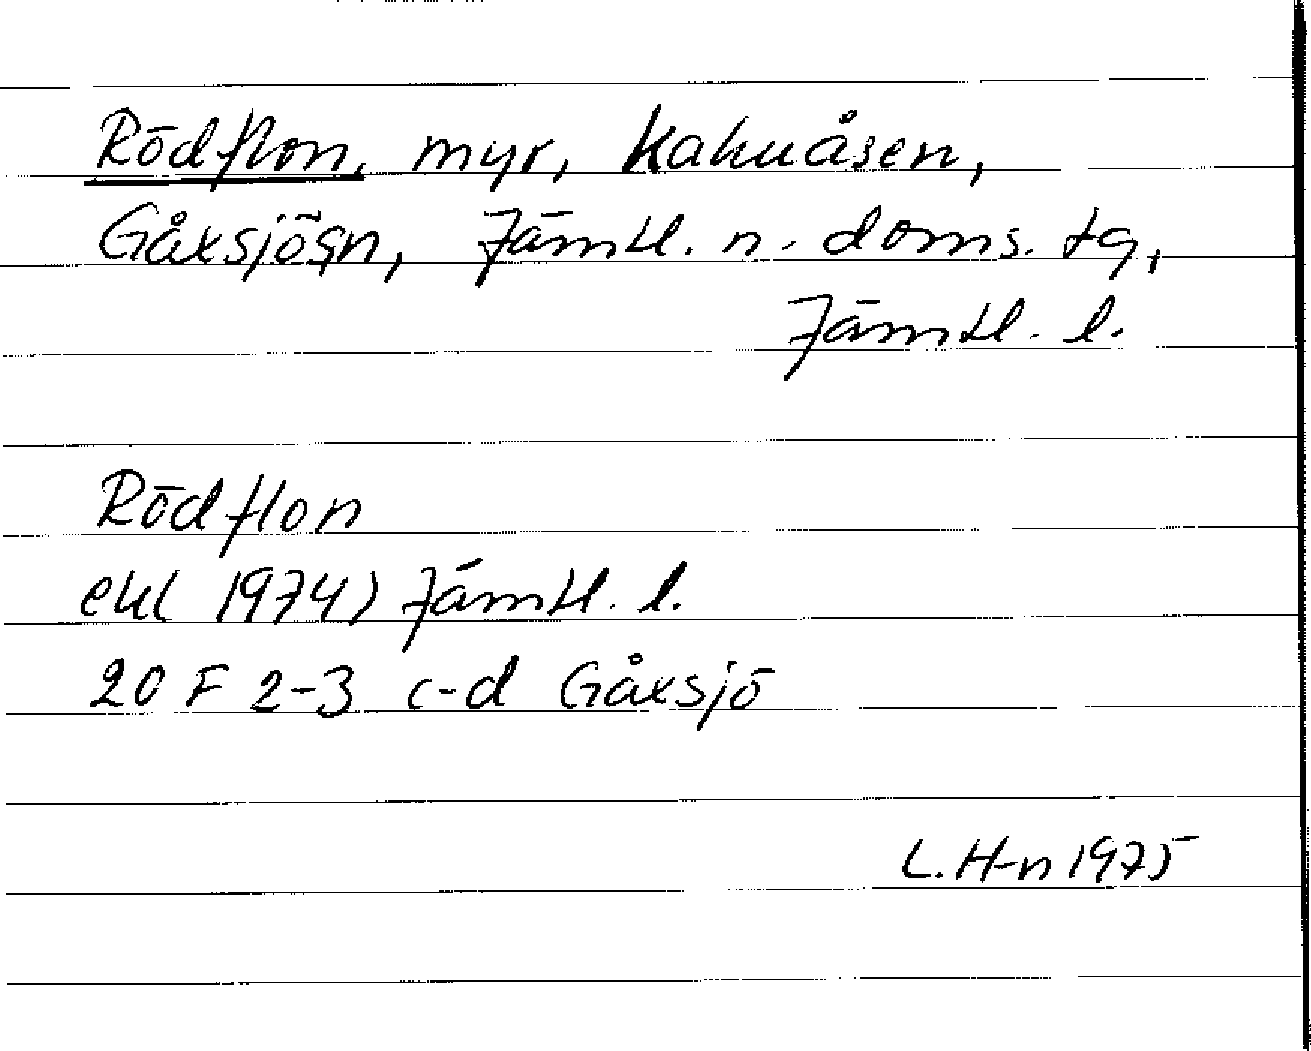 Rödflon, myr, Kakuåsen,
Gåxsjö sn, Jämtl. n. doms. tg,
Jämtl. l.
Rödflon
ekl 1974) Jämtl. l.
20 F 2-3 c-d Gåxsjö
L. H-n 1975